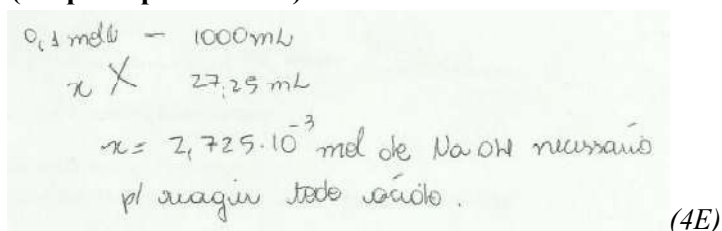 0,1 mol - 1000 mL
x X 27,25 mL
x = 2,725.10⁻³ mol de NaOH necessario
p/ reagir todo ácido.
(4E)